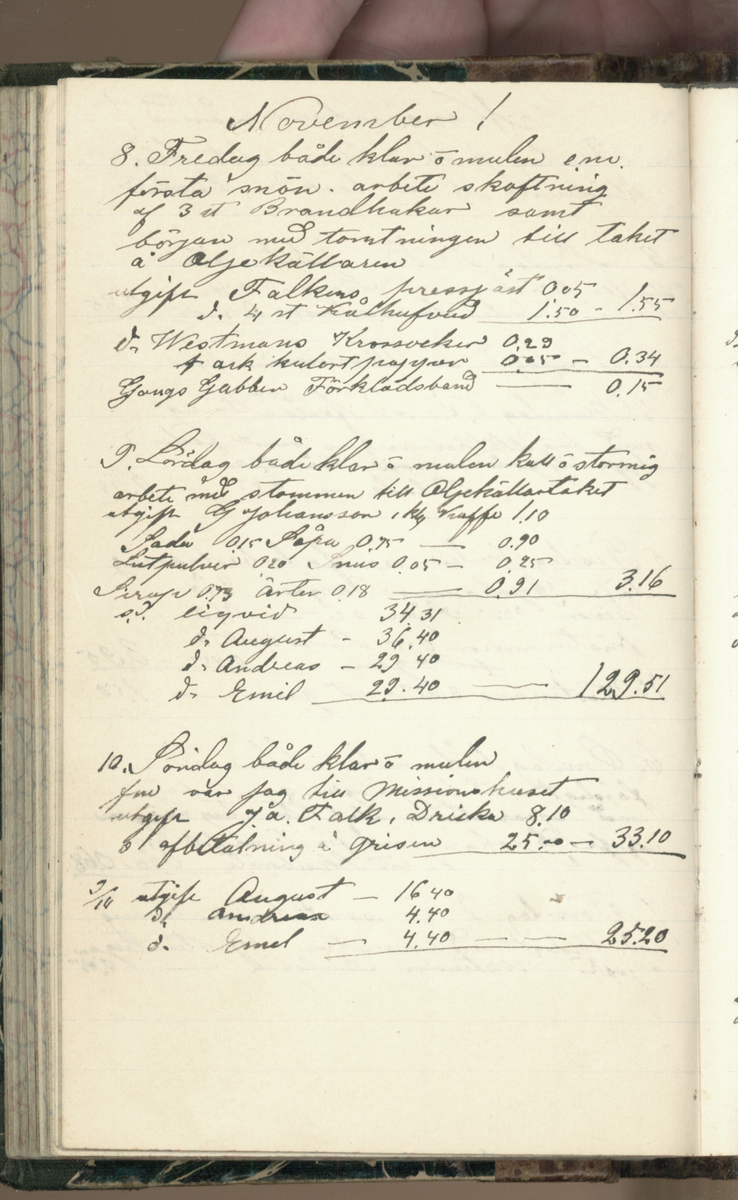 November !
8. Fredag både klar o mulen em.
första snön. arbete skaftning
af 3 st Brandhakar samt
början med tomtningen till taket
å Oljekällaren
utgift Falkens pressjäst 0.05
d. 4 st Kålhufvud 1.50 - 1.55
d. Westmans Krossocker 0.29
ark kulört papper 0.05 - 0.34
Gabben Förklädsband — 0.15
9. Lördag både klar o mulen kall o stormig
arbete med stommen till Oljekällartaket
utgift G Johansson 1 kg Kaffe 1.10
Soda 0.15 Såpa 0.75 — 0.90
Lutpulver 0.20 Snus 0.05 — 0.25
Sirap 0.73 ärter 0.18 — 0.91 3.16
s.d. liqvid 34.31
d. August - 36.40
d. Andreas - 29 40
d. Emil — 29.40 — 129.51
10. Söndag både klar o mulen
fm var jag till Missionshuset
utgift J.A. Falk, Dricka 8.10
o afbetalning å grisen 25.00 - 33.10
9/10 utgift August — 16 40
d. Andreas 4.40
d. Emil — 4.40 — — 25.20